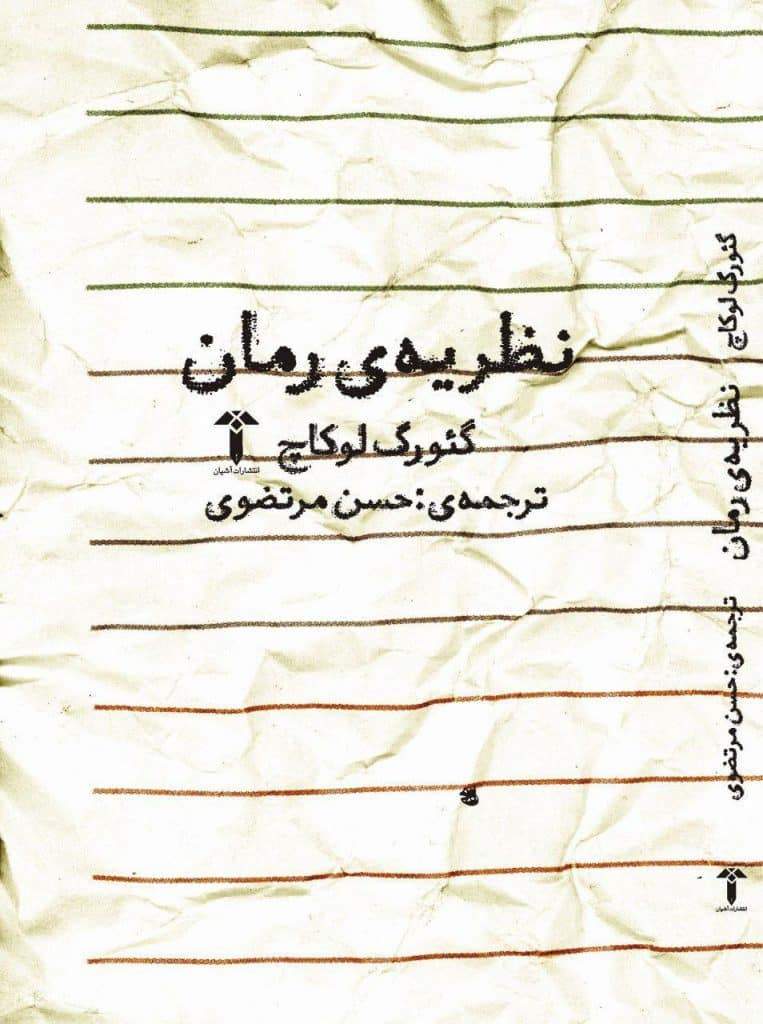 نظریه‌ی رمان
گئورگ لوکاچ
انتشارات آشیان
ترجمه‌ی: حسن مرتضوی
گئورگ لوکاچ
نظریه‌ی رمان
ترجمه‌ی: حسن مرتضوی
انتشارات آشیان